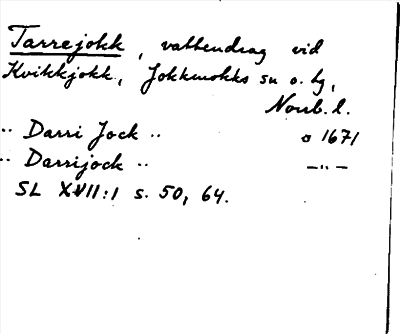 Tarrejokk, vattendrag vid
Kvikkjokk, Jokkmokks sn o. tg,
Norrb. l.
·· Darri Jock ·· o 1671
·· Darrijock ·· —··—
SL XVII:1 s. 50, 64.